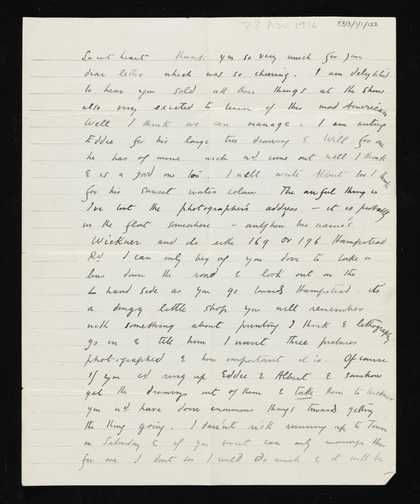 23 Nov 1916
Sweet heart thank you so very much for your
dear letter which was so cheering. I am delighted
to hear you sold all those things at the show
also very excited to hear of this mad American
Well I think we can manage. I am writing
Eddie for his large tree drawing & Will for one
he has of mine which wd come out well I think
& is a good one too. I will write Albert too I think
for his sunset water colour. The awful thing is
I've lost the photographer's address – it is probably
in the flat somewhere – anyhow his name is
Wickner and do either 169 or 196 Hampstead
Rd I can only beg of you dove to take a
bus down the road & look out on the
L hand side as you go towards Hampstead. its
a dingy little shop you will remember
with something about printing I think & lithography
go in & tell him I want three pictures
photographed & how important it is. Of course
if you cd ring up Eddie & Albert & somehow
get the drawings out of them & take them to Wickner
you wd have done enormous things towards getting
the thing going. I daren't risk running up to Town
on Saturday & if you sweet can only manage this
for me I dont see I will do much & it will be